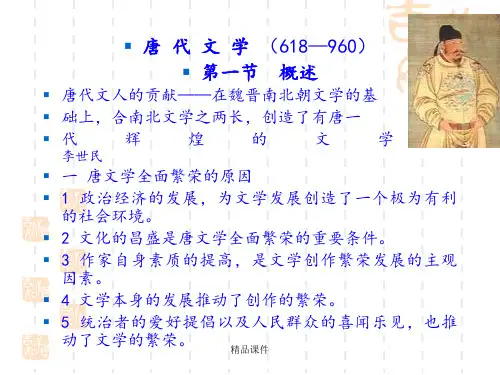 ▪ 唐 代 文 学 （618—960）
▪ 第一节 概述
▪ 唐代文人的贡献——在魏晋南北朝文学的基
▪ 础上，合南北文学之两长，创造了有唐一
▪ 代 辉 煌 的 文 学
李世民
▪ 一 唐文学全面繁荣的原因
▪ 1 政治经济的发展，为文学发展创造了一个极为有利
的社会环境。
▪ 2 文化的昌盛是唐文学全面繁荣的重要条件。
▪ 3 作家自身素质的提高，是文学创作繁荣发展的主观
因素。
▪ 4 文学本身的发展推动了创作的繁荣。
▪ 5 统治者的爱好提倡以及人民群众的喜闻乐见，也推
动了文学的繁荣。
精品课件